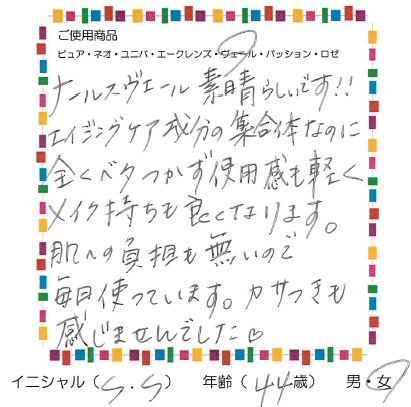 ご使用商品
ピュア・ネオ・ユニバ・エークレンズ・ヴェール・パッション・ロゼ
ナールスヴェール素晴らしいです!!
エイジングケア成分の集合体なのに
全くベタつかず使用感も軽く
メイク持ちも良くなります。
肌への負担も無いので
毎日使っています。カサつきも
感じませんでした♡
イニシャル（S.S） 年齢（44歳） 男・女